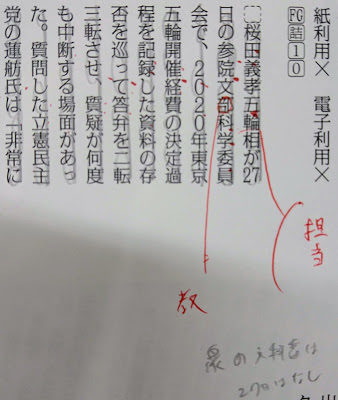 紙利用× 電子利用×
FG詰10
桜田義孝五輪相が27
日の参院文部科学委員
会で、2020年東京
五輪開催経費の決定過
程を記録した資料の存
否を巡って答弁を二転
三転させ、質疑が何度
も中断する場面があっ
た。質問した立憲民主
党の蓮舫氏は「非常に
担当
教
衆の文科委は
27日はなし